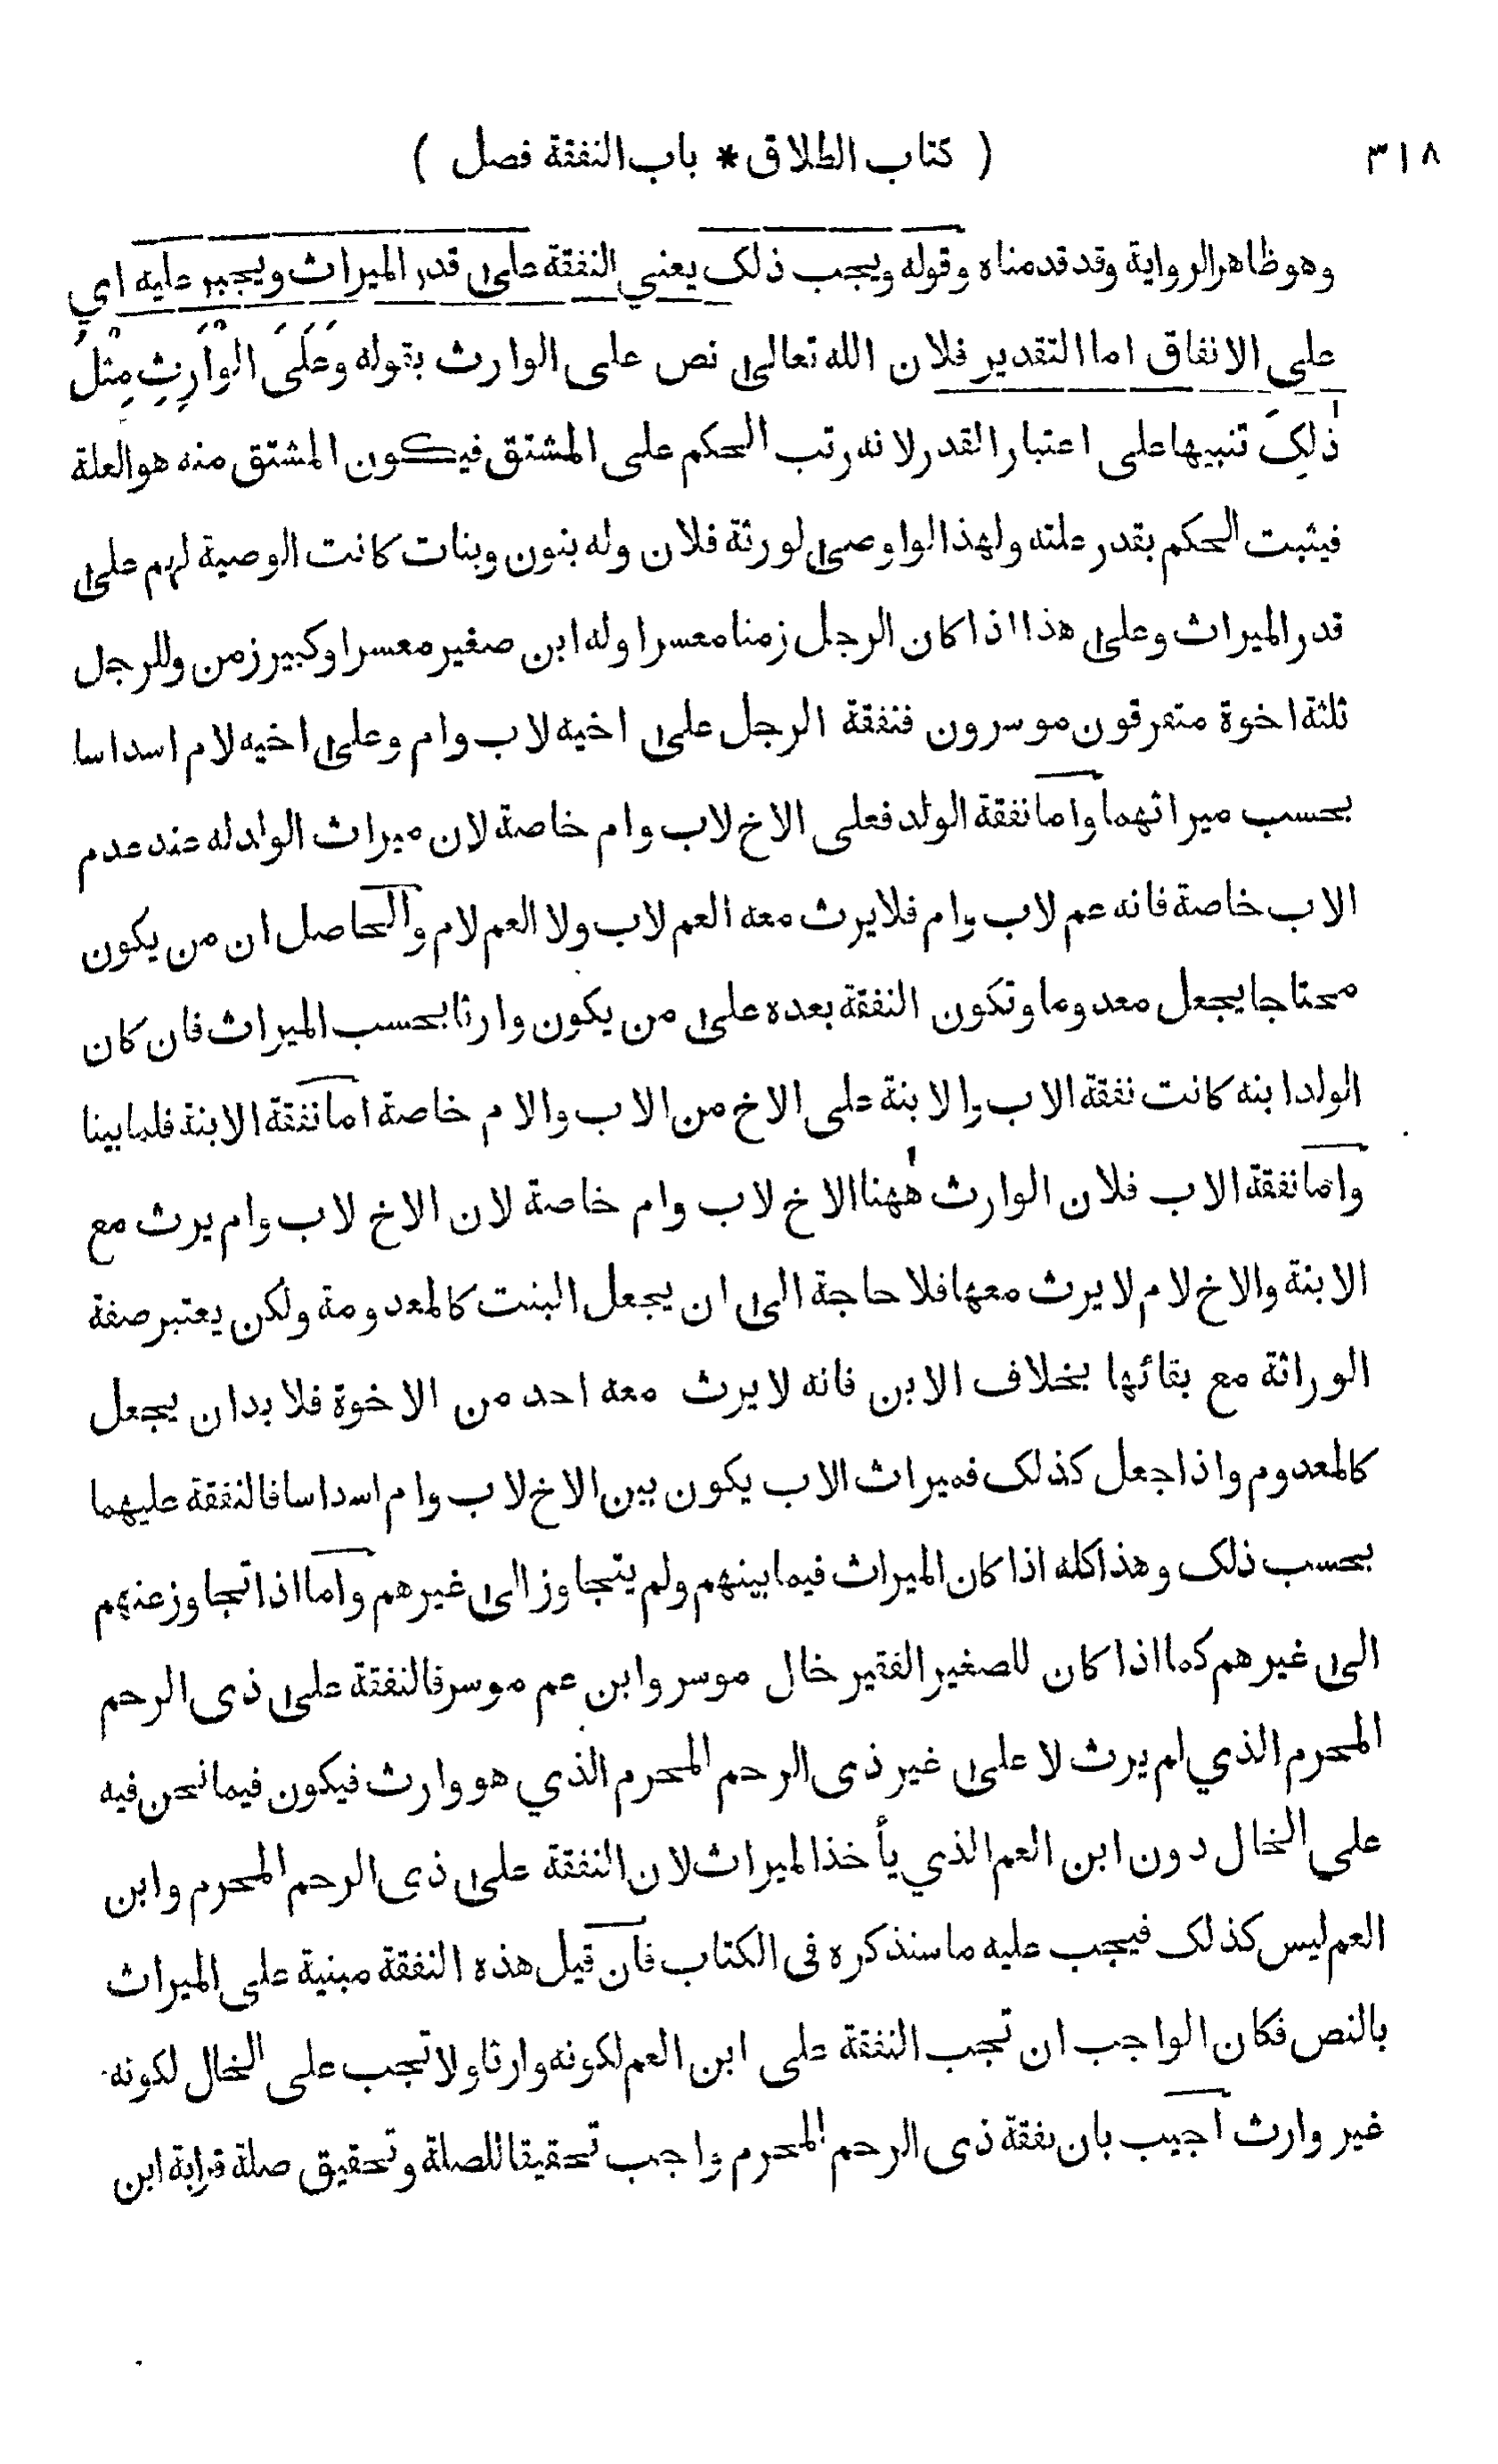 ٣١٨ ( كتاب الطلاق * باب النفقة فصل )
وهو ظاهر الرواية وقد قدمناه وقوله ويجب ذلك يعني النفقة على قدر الميراث ويجبر عليه اي
على الانفاق اما التقدير فلان الله تعالى نص على الوارث بقوله وَعَلَى الْوَارِثِ مِثْلُ
ذٰلِكَ تنبيها على اعتبار القدر لانه رتب الحكم على المشتق فيكون المشتق منه هو العلة
فيثبت الحكم بقدر علته ولهذا لو اوصى لورثة فلان وله بنون وبنات كانت الوصية لهم على
قدر الميراث وعلى هذا اذا كان الرجل زمنا معسرا وله ابن صغير معسر اوكبير زمن وللرجل
ثلثة اخوة متفرقون موسرون فنفقة الرجل على اخيه لاب وام وعلى اخيه لام اسداسا
بحسب ميراثهما واما نفقة الولد فعلى الاخ لاب وام خاصة لان ميراث الولد له عند عدم
الاب خاصة فانه عم لاب وام فلا يرث معه العم لاب ولا العم لام والحاصل ان من يكون
محتاجا يجعل معدوما وتكون النفقة بعده على من يكون وارثا بحسب الميراث فان كان
الولد ابنه كانت نفقة الاب والابنة على الاخ من الاب والام خاصة اما نفقة الابنة فلما بينا
واما نفقة الاب فلان الوارث هٰهنا الاخ لاب وام خاصة لان الاخ لاب وام يرث مع
الابنة والاخ لام لا يرث معها فلا حاجة الى ان يجعل البنت كالمعدومة ولكن يعتبر صفة
الوراثة مع بقائها بخلاف الابن فانه لا يرث معه احد من الاخوة فلا بد ان يجعل
كالمعدوم واذا جعل كذلك فميراث الاب يكون بين الاخ لاب وام اسداسا فالنفقة عليهما
بحسب ذلك وهذا كله اذا كان الميراث فيما بينهم ولم يتجاوز الى غيرهم واما اذا تجاوز عنهم
الى غيرهم كما اذا كان للصغير الفقير خال موسر وابن عم موسر فالنفقة على ذى الرحم
المحرم الذي لم يرث لا على غير ذى الرحم المحرم الذي هو وارث فيكون فيما نحن فيه
على الخال دون ابن العم الذي يأخذ الميراث لان النفقة على ذى الرحم المحرم وابن
العم ليس كذلك فيجب عليه ما سنذكره فى الكتاب فان قيل هذه النفقة مبنية على الميراث
بالنص فكان الواجب ان تجب النفقة على ابن العم لكونه وارثا ولا تجب على الخال لكونه
غير وارث اجيب بان نفقة ذى الرحم المحرم واجب تحقيقا للصلة وتحقيق صلة قرابة ابن